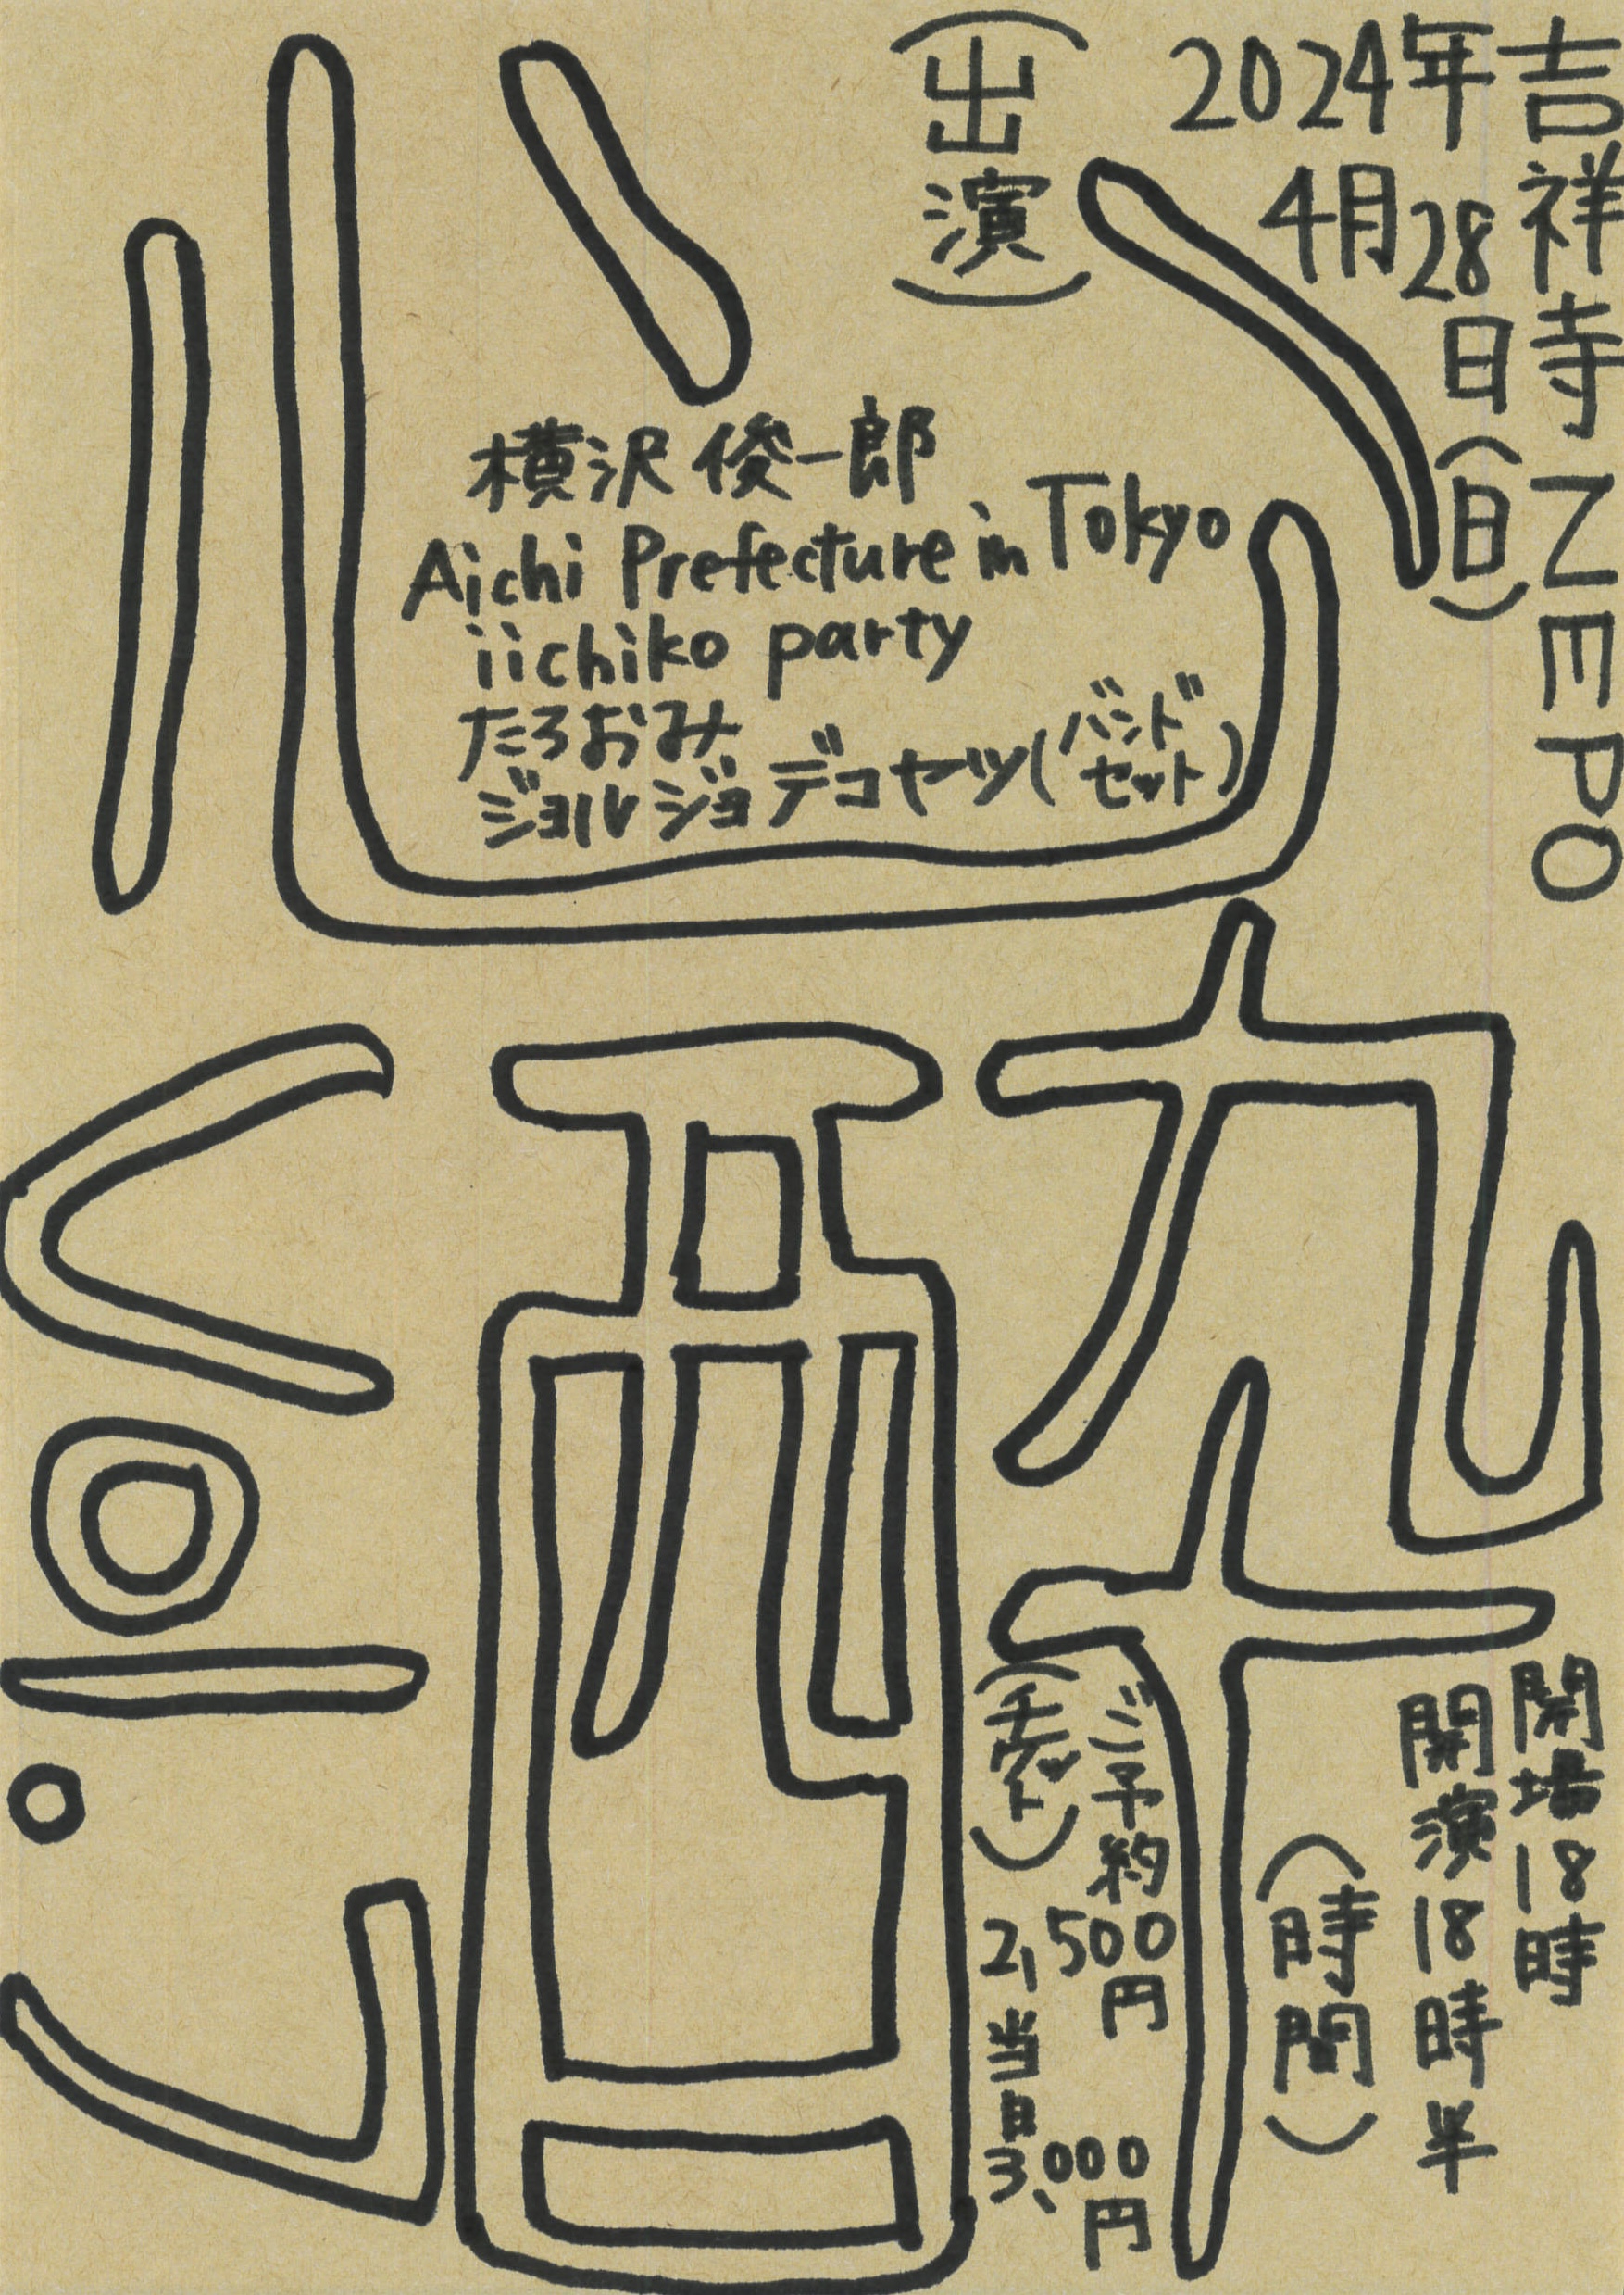 吉祥寺ZEPO
2024年
4月28日(日)
(出演)
横沢俊一郎
Aichi Prefecture in Tokyo
iichiko party
たろおみ
ジョルジョデコヤツ(バンドセット)
心酔
Vol.7
開場18時
開演18時半
(時間)
ご予約2,500円
(チケット)
当日3,000円